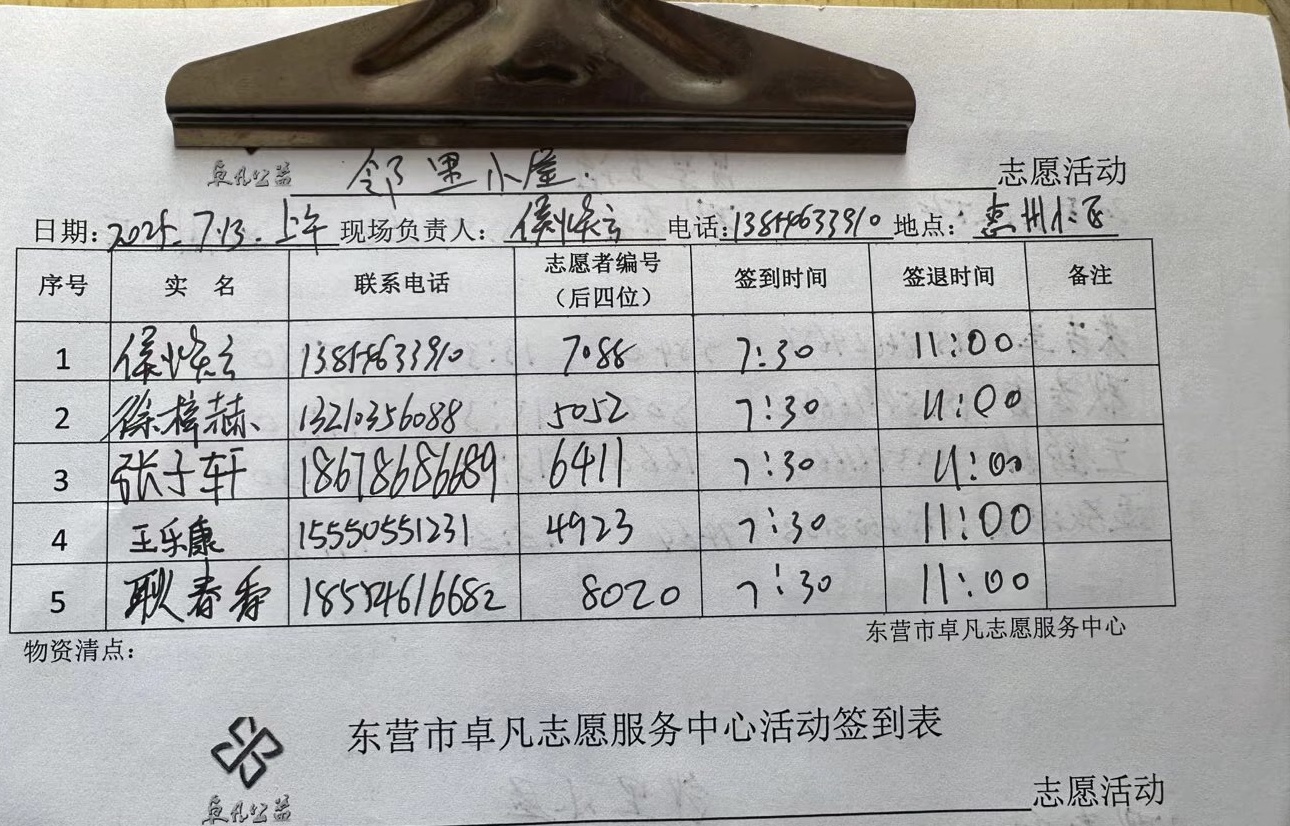 卓凡公益 邻里小屋 志愿活动
日期: 2025.7.13.上午 现场负责人: 侯 电话: 地点: 惠州
序号 实 名 联系电话 志愿者编号（后四位） 签到时间 签退时间 备注
1 侯 7088 7:30 11:00
2 徐梓赫 13210356088 5052 7:30 11:00
3 张子轩 18678686689 6411 7:30 11:00
4 王乐康 15550551231 4923 7:30 11:00
5 耿春香 18554616682 8020 7:30 11:00
物资清点: 东营市卓凡志愿服务中心
东营市卓凡志愿服务中心活动签到表
卓凡公益 志愿活动